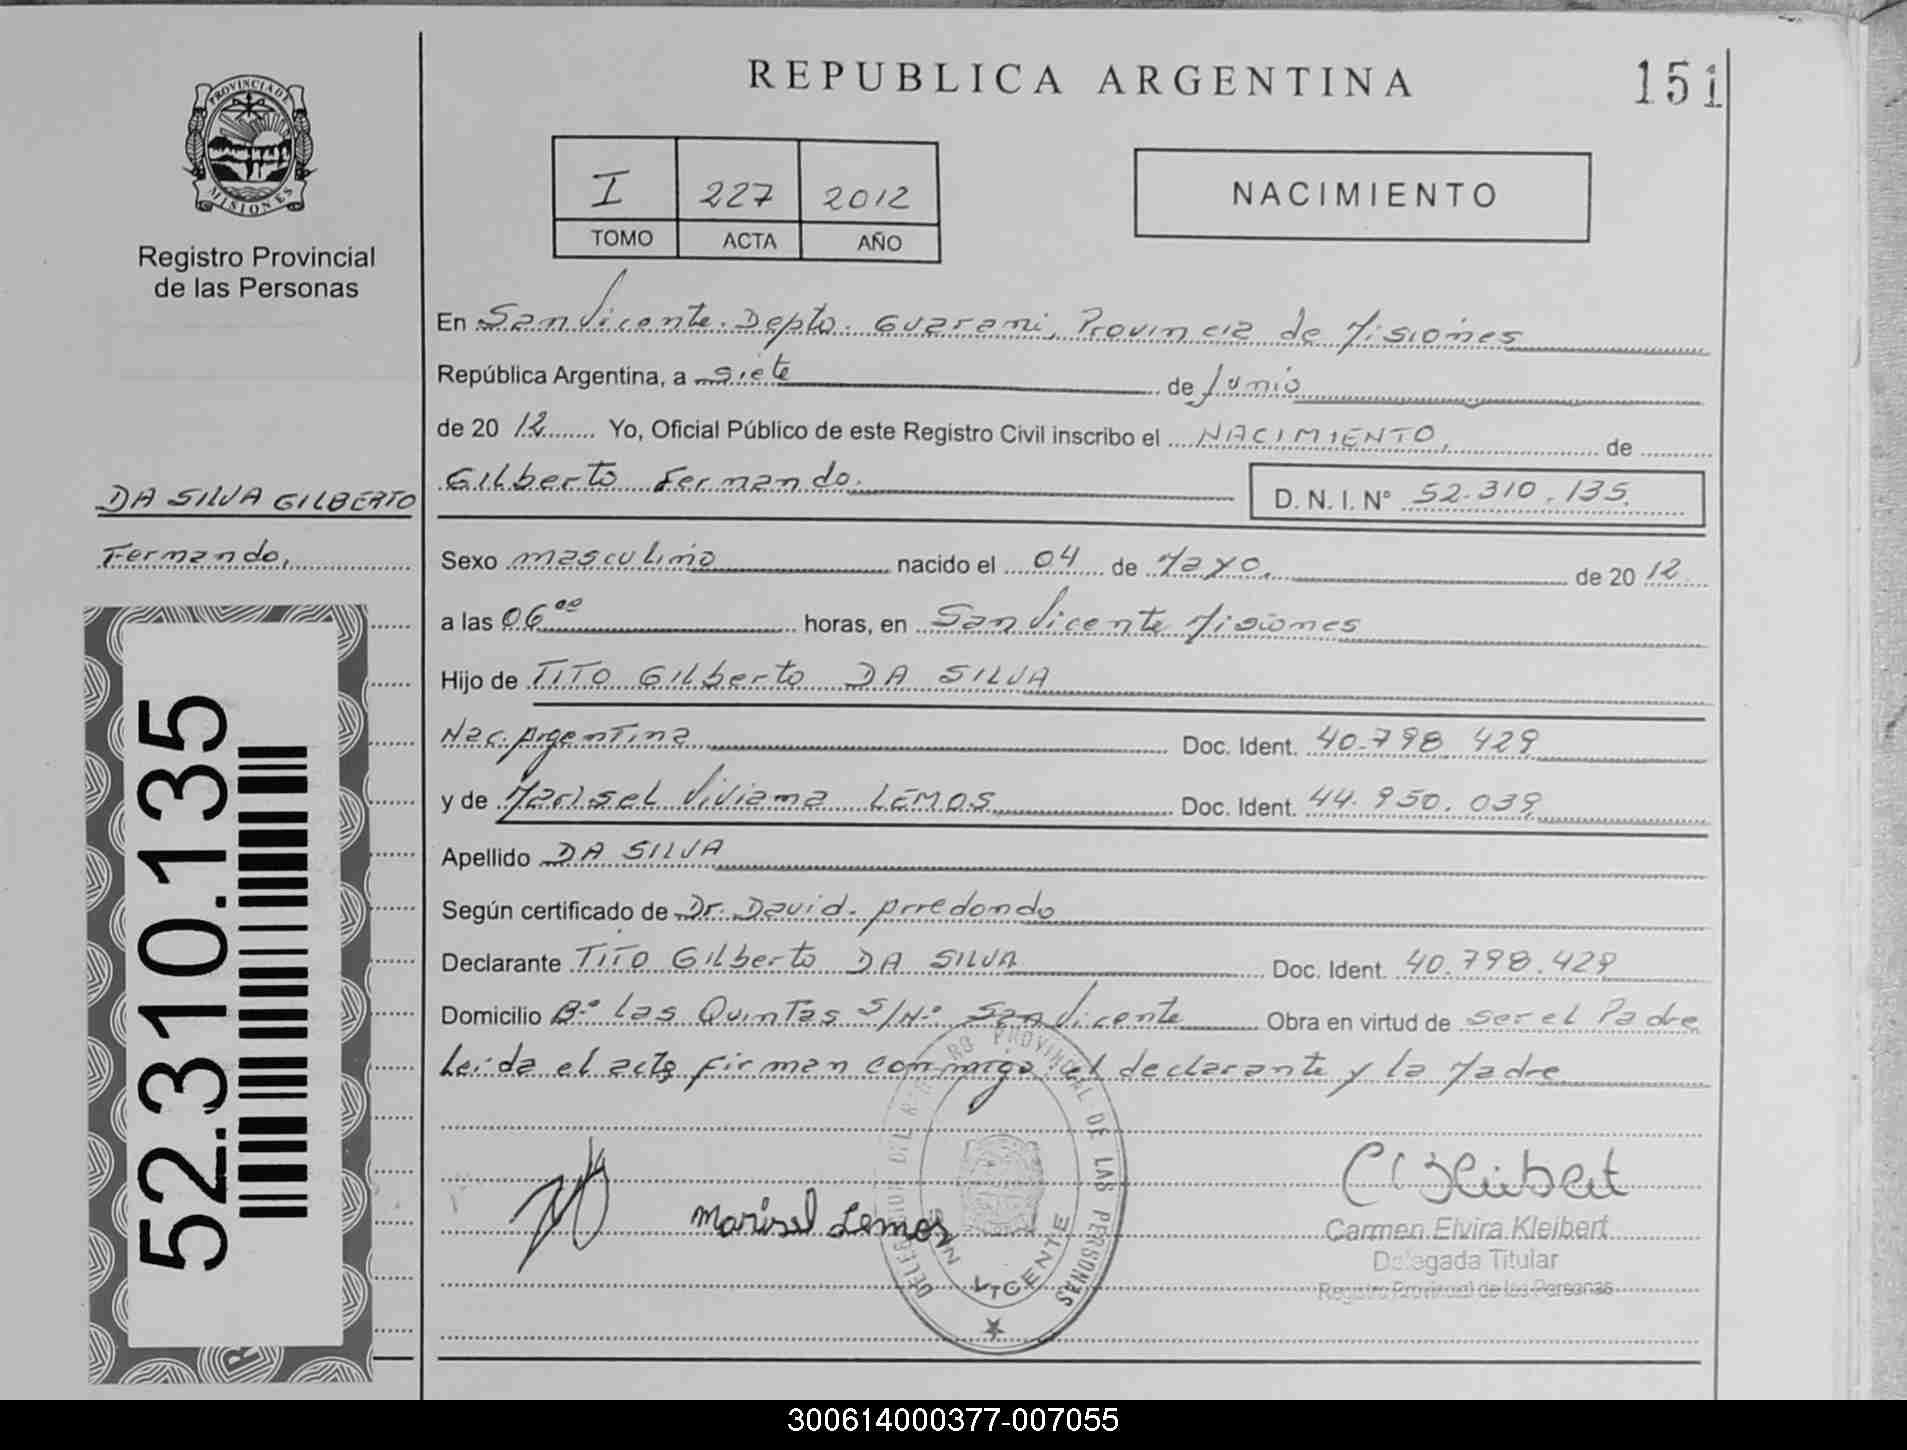 REPUBLICA ARGENTINA
151
PROVINCIA DE
MISIONES
Registro Provincial
de las Personas
I 227 2012
TOMO ACTA AÑO
NACIMIENTO
En San Vicente. Depto. Guarani, Provincia de Misiones
República Argentina, a siete de Junio
de 2012 Yo, Oficial Público de este Registro Civil inscribo el NACIMIENTO, de
Gilberto Fernando. D. N. I. Nº 52.310.135.
DA SILVA GILBERTO
Fernando,
Sexo masculino nacido el 04 de Mayo, de 2012
a las 06 00 horas, en San Vicente Misiones
Hijo de TITO Gilberto DA SILVA
Nac. Argentina Doc. Ident. 40.798.429
y de Marisel Viviana LEMOS Doc. Ident. 44.950.039
Apellido DA SILVA
Según certificado de Dr. David. Arredondo
Declarante TITO Gilberto DA SILVA Doc. Ident. 40.798.429
Domicilio B.º las Quintas S/N.º San Vicente Obra en virtud de ser el Padre
Leida el acta firman conmigo el declarante y la Madre
52.310.135
Marisel Lemos
DELEGACION DEL REGISTRO PROVINCIAL DE LAS PERSONAS
SAN VICENTE
C Kleibert
Carmen Elvira Kleibert
Delegada Titular
Registro Provincial de las Personas
300614000377-007055